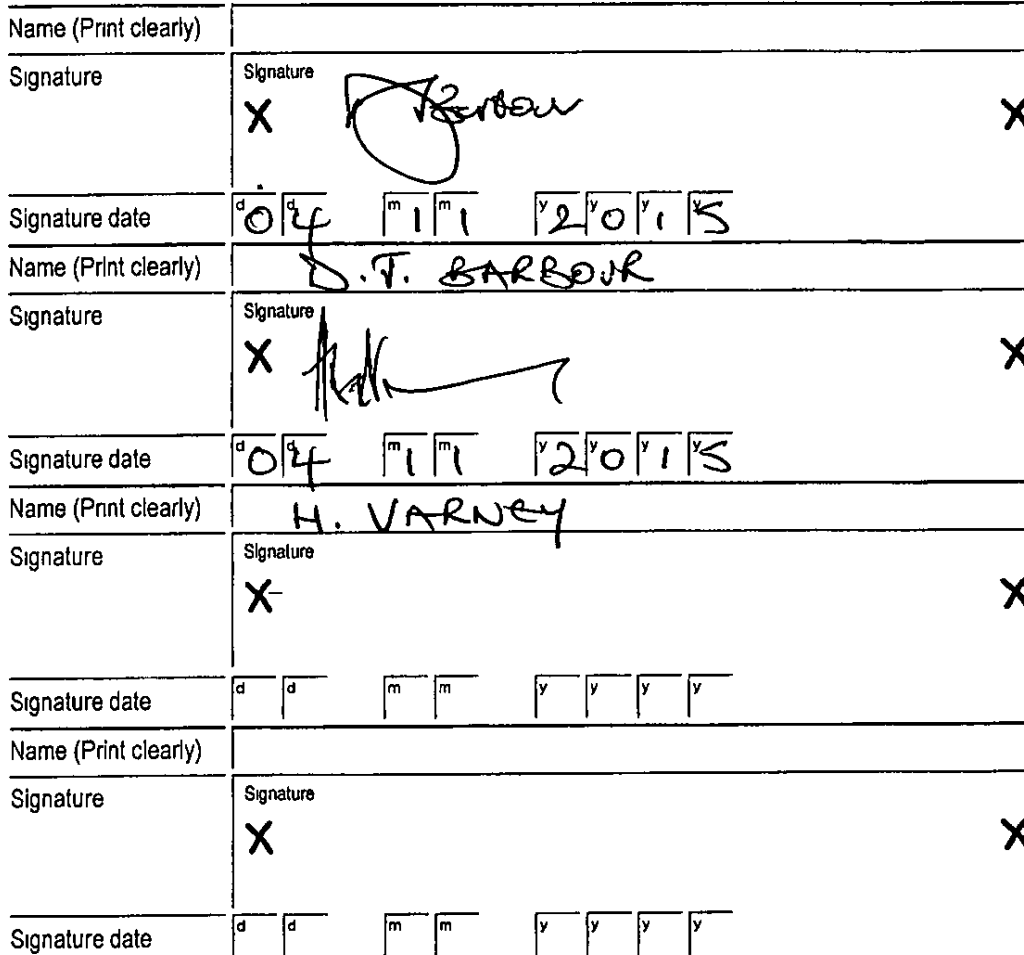 Name (Print clearly)
Signature
Signature
X Barbour X
Signature date d d m m y y y y
04 11 2015
Name (Print clearly) D.J. BARBOUR
Signature
Signature
X X
Signature date d d m m y y y y
04 11 2015
Name (Print clearly) H. VARNEY
Signature
Signature
X X
Signature date d d m m y y y y
Name (Print clearly)
Signature
Signature
X X
Signature date d d m m y y y y